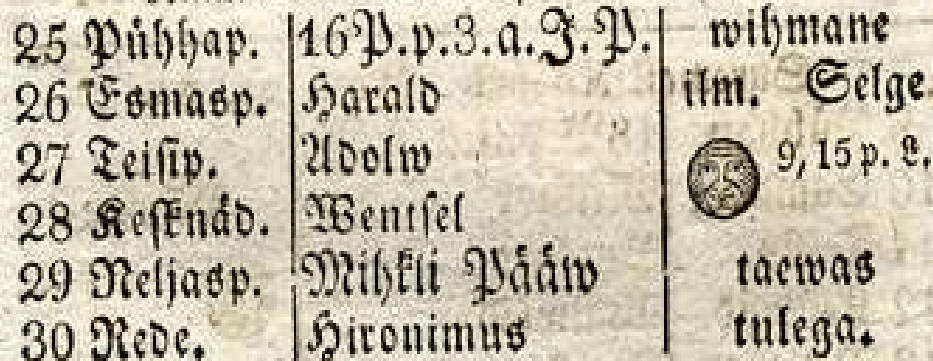 25 Pühhap. 16 P. p. 3. a. J. P. wihmane
26 Esmasp. Harald ilm. Selge
27 Teisip. Adolw 9, 15 p. L.
28 Kesknäd. Wentsel
29 Neljasp. Mihkli Pääw taewas
30 Rede. Hironimus tulega.